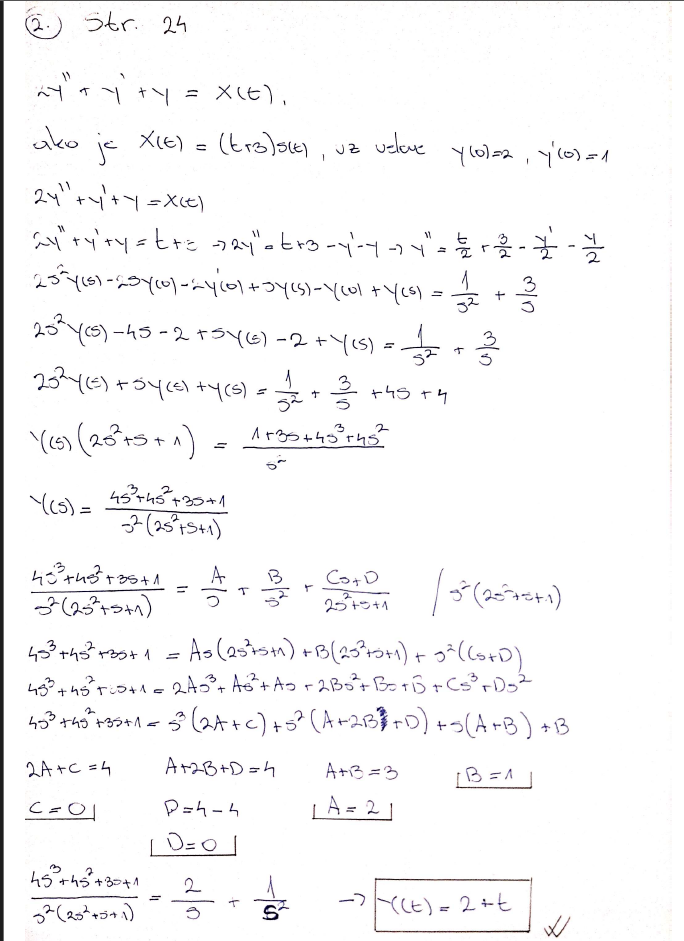 2. Str. 24
2y'' + y' + y = x(t),
ako je x(t) = (t+3)s(t), uz uslove y(0)=2, y'(0)=1
2y'' + y' + y = x(t)
2y'' + y' + y = t+3 → 2y'' = t+3-y'-y → y'' = t/2 + 3/2 - y'/2 - y/2
2s²Y(s) - 2sy(0) - 2y'(0) + sY(s) - y(0) + Y(s) = 1/s² + 3/s
2s²Y(s) - 4s - 2 + sY(s) - 2 + Y(s) = 1/s² + 3/s
2s²Y(s) + sY(s) + Y(s) = 1/s² + 3/s + 4s + 4
Y(s)(2s²+s+1) = (1+3s+4s³+4s²)/s²
Y(s) = (4s³+4s²+3s+1)/(s²(2s²+s+1))
(4s³+4s²+3s+1)/(s²(2s²+s+1)) = A/s + B/s² + (Cs+D)/(2s²+s+1) / s²(2s²+s+1)
4s³+4s²+3s+1 = As(2s²+s+1) + B(2s²+s+1) + s²(Cs+D)
4s³+4s²+3s+1 = 2As³ + As² + As + 2Bs² + Bs + B + Cs³ + Ds²
4s³+4s²+3s+1 = s³(2A+C) + s²(A+2B+D) + s(A+B) + B
2A+C=4 A+2B+D=4 A+B=3 B=1
C=0 D=4-4 A=2
D=0
(4s³+4s²+3s+1)/(s²(2s²+s+1)) = 2/s + 1/s² → y(t) = 2+t